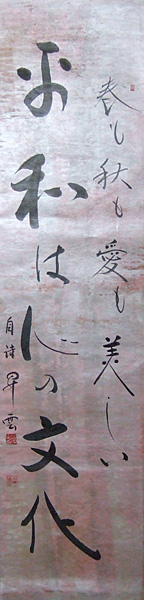 春も秋も愛も美しい
平和は心の文化
自詩 昇雲